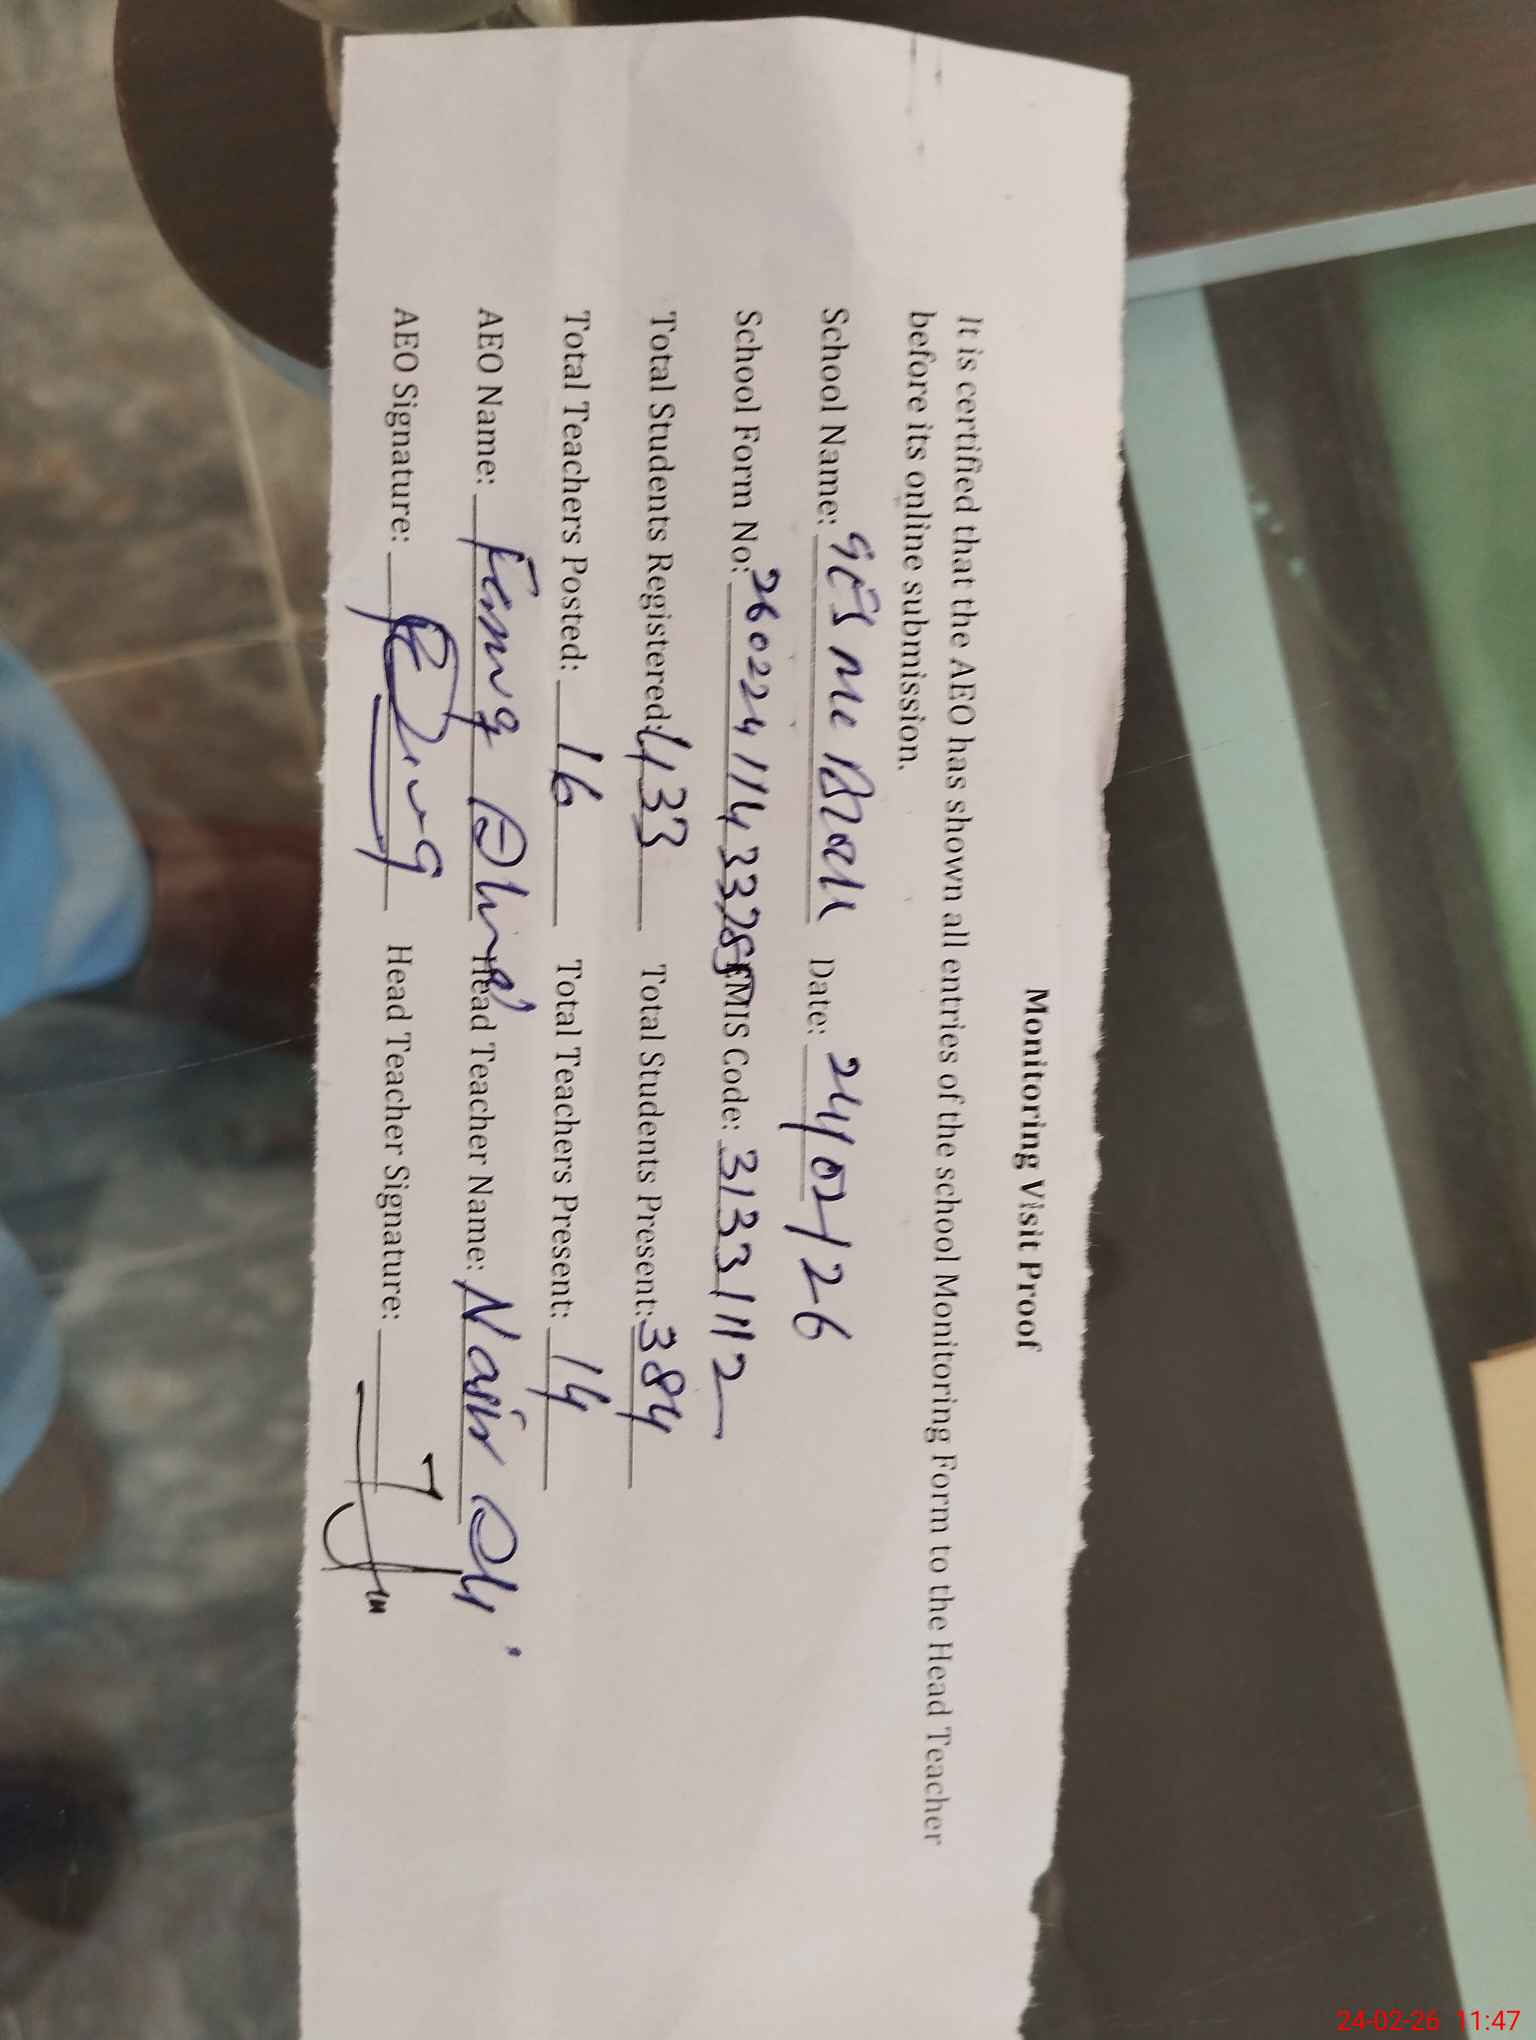 Monitoring Visit Proof
It is certified that the AEO has shown all entries of the school Monitoring Form to the Head Teacher
before its online submission.
School Name: GES MC Date: 24/02/26
School Form No: EMIS Code: 31331112
Total Students Registered: 433 Total Students Present: 384
Total Teachers Posted: 16 Total Teachers Present: 14
AEO Name: Head Teacher Name: Nasir Ali
AEO Signature: Head Teacher Signature:
24-02-26 11:47